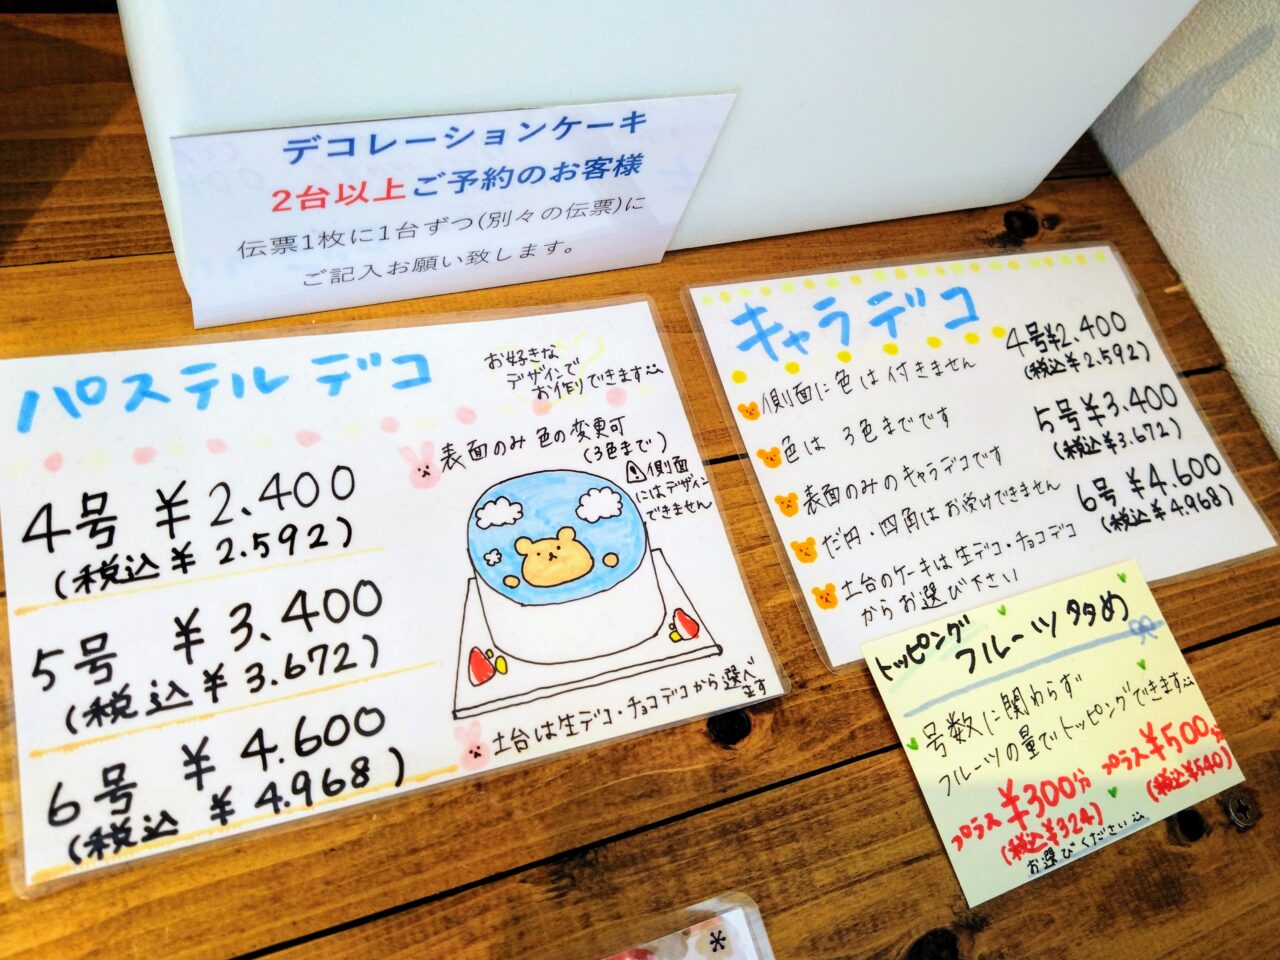 デコレーションケーキ
2台以上ご予約のお客様
伝票1枚に1台ずつ(別々の伝票)に
ご記入お願い致します。
パステルデコ
お好きな
デザインで
お作りできます
表面のみ色の変更可
(3色まで)
側面
にはデザイン
できません
4号 ¥2.400
(税込¥2.592)
5号 ¥3.400
(税込¥3.672)
6号 ¥4.600
(税込¥4.968)
土台は生デコ・チョコデコから選べ
ます
キャラデコ
4号¥2.400
(税込¥2.592)
5号¥3.400
(税込¥3.672)
6号¥4.600
(税込¥4.968)
側面に色は付きません
色は3色までです
表面のみのキャラデコです
だ円・四角はお受けできません
土台のケーキは生デコ・チョコデコ
からお選び下さい
トッピング
フルーツ多め
号数に関わらず
フルーツの量でトッピングできます
プラス¥300分
(税込¥324)
プラス¥500分
(税込¥540)
お選びください
*